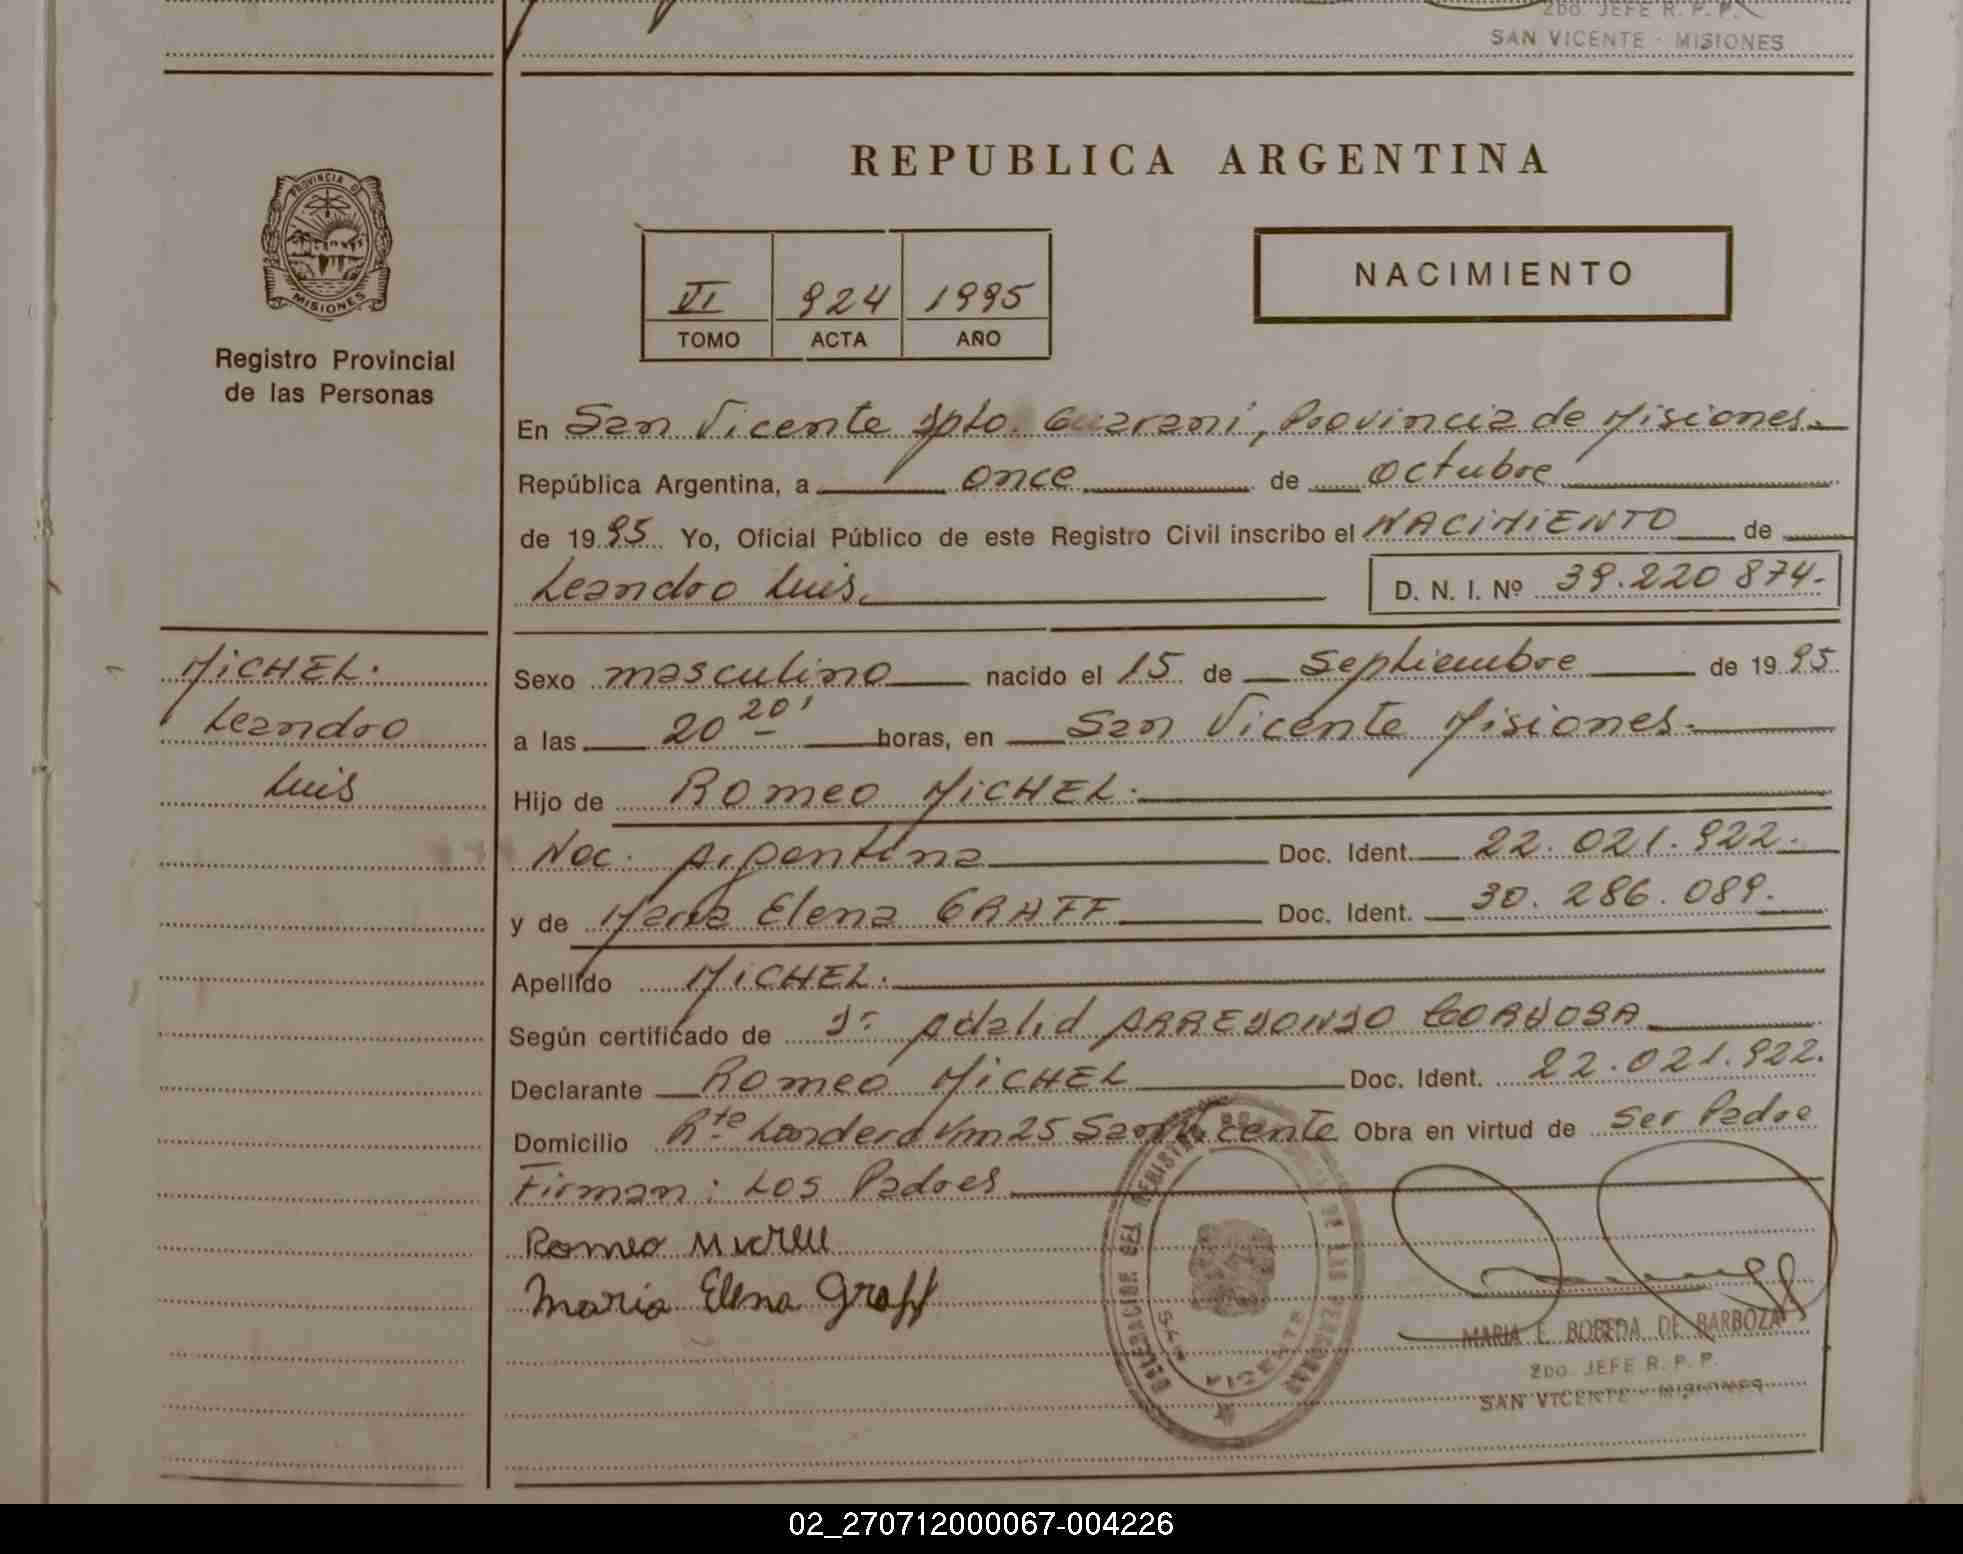 2DO. JEFE R. P. P.
SAN VICENTE - MISIONES
REPUBLICA ARGENTINA
PROVINCIA D
MISIONES
Registro Provincial
de las Personas
VI 924 1995
TOMO ACTA AÑO
NACIMIENTO
En San Vicente Dpto. Guaraní, Provincia de Misiones.
República Argentina, a once de octubre
de 1995 Yo, Oficial Público de este Registro Civil inscribo el NACIMIENTO de
Leandro Luis. D. N. I. Nº 39.220 874.-
MICHEL.
Leandro
Luis
Sexo masculino nacido el 15 de Septiembre de 1995.
a las 20 20' horas, en San Vicente Misiones.
Hijo de Romeo MICHEL.
Nac. Argentina Doc. Ident. 22.021.922.-
y de Maria Elena GRAFF Doc. Ident. 30.286.089.
Apellido MICHEL.
Según certificado de Dr Adalid ARREDONDO CORDOBA
Declarante Romeo MICHEL Doc. Ident. 22.021.922.
Domicilio Rte Km 25 San Vicente Obra en virtud de Ser Padre
Firman: Los Padres
Romeo Michel
Maria Elena Graff
DELEGACION DEL REGISTRO PROVINCIAL DE LAS PERSONAS
SAN VICENTE
MARIA E. BOBEDA DE BARBOZA
2DO. JEFE R. P. P.
SAN VICENTE - MISIONES
02_270712000067-004226